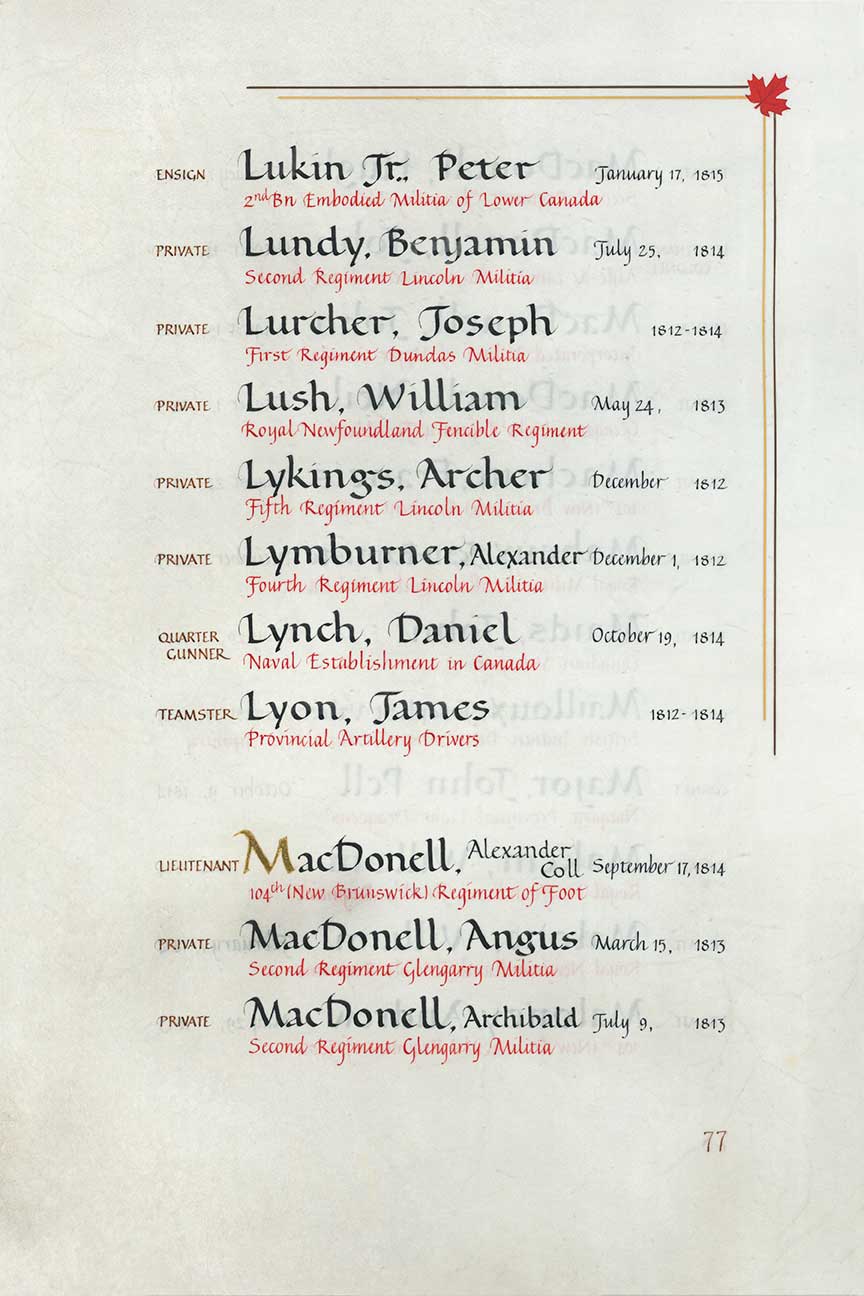 ENSIGN Lukin Jr., Peter January 17, 1815
2nd Bn Embodied Militia of Lower Canada
PRIVATE Lundy, Benjamin July 25, 1814
Second Regiment Lincoln Militia
PRIVATE Lurcher, Joseph 1812-1814
First Regiment Dundas Militia
PRIVATE Lush, William May 24, 1813
Royal Newfoundland Fencible Regiment
PRIVATE Lykings, Archer December 1812
Fifth Regiment Lincoln Militia
PRIVATE Lymburner, Alexander December 1, 1812
Fourth Regiment Lincoln Militia
QUARTER GUNNER Lynch, Daniel October 19, 1814
Naval Establishment in Canada
TEAMSTER Lyon, James 1812-1814
Provincial Artillery Drivers
LIEUTENANT MacDonell, Alexander Coll September 17, 1814
104th (New Brunswick) Regiment of Foot
PRIVATE MacDonell, Angus March 15, 1813
Second Regiment Glengarry Militia
PRIVATE MacDonell, Archibald July 9, 1813
Second Regiment Glengarry Militia
77